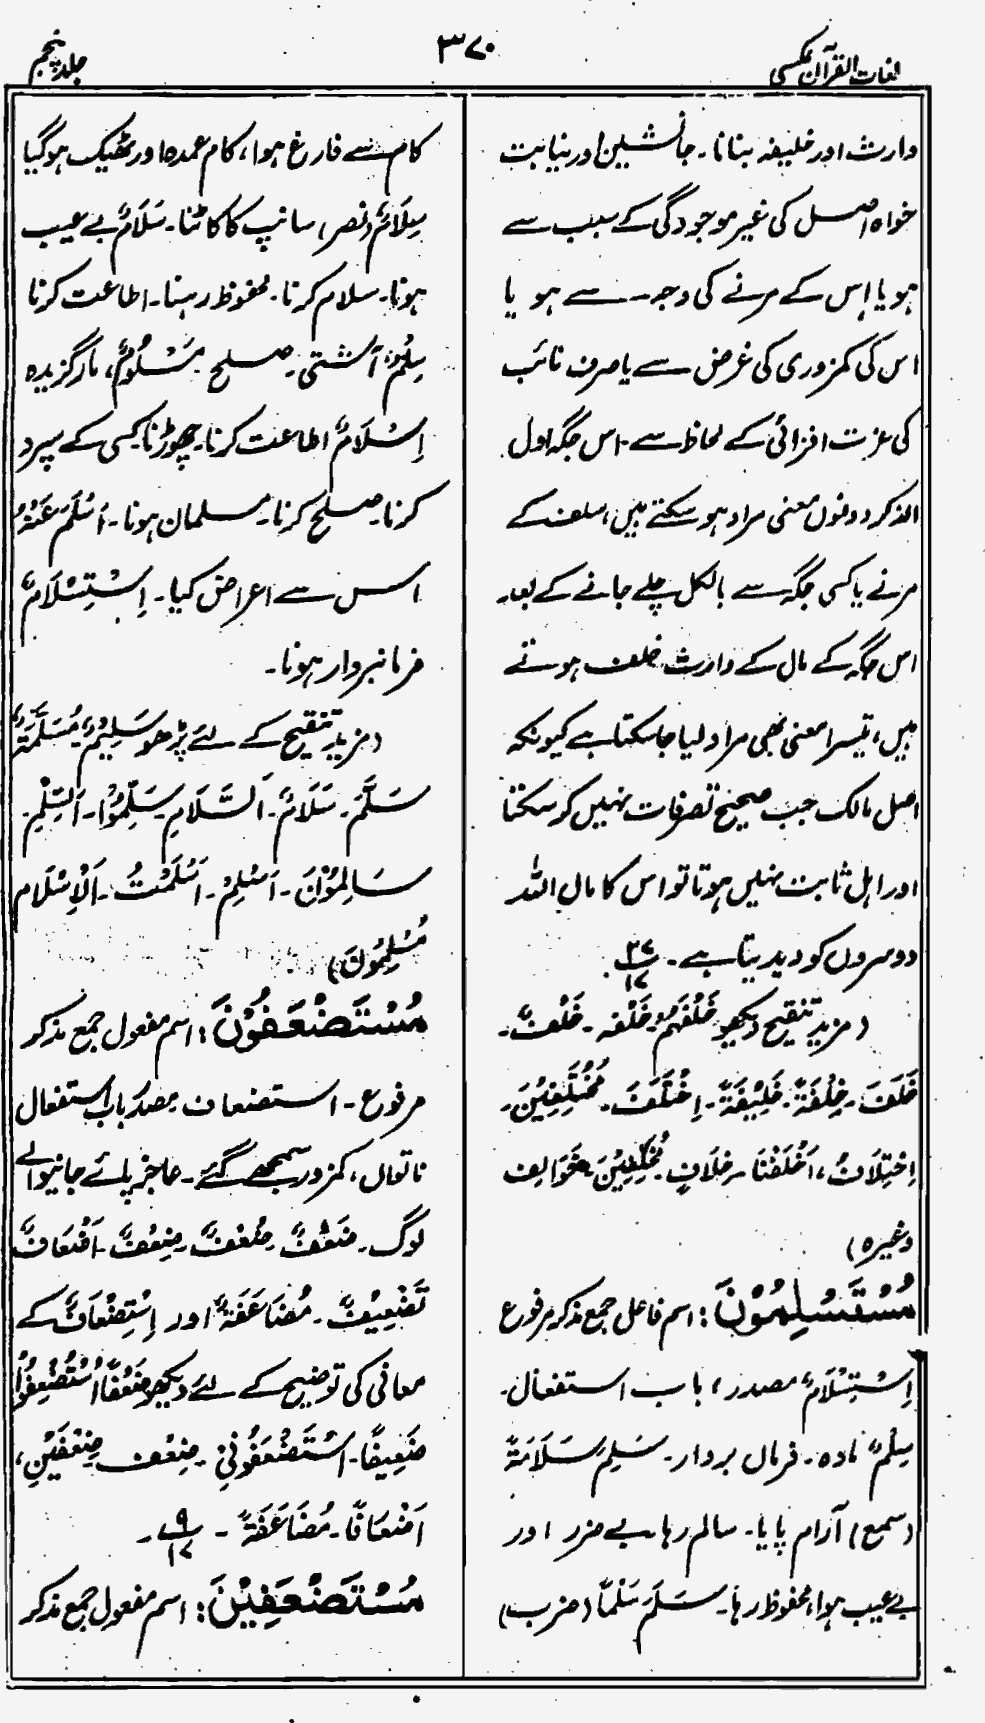 لغات القرآن عکسی
۳۷۰
جلد پنجم
وارث اور خلیفہ بنانا۔ جانشین اور نیابت
خواہ اصل کی غیر موجودگی کے سبب سے
ہو یا اس کے مرنے کی وجہ سے ہو یا
اس کی کمزوری کی غرض سے یا صرف نائب
کی عزت افزائی کے لحاظ سے۔ اس جگہ اول
الذکر دونوں معنی مراد ہو سکتے ہیں، سلف کے
مرنے یا کسی جگہ سے بالکل چلے جانے کے بعد۔
اس جگہ کے مال کے وارث خلف ہوتے
ہیں، تیسرا معنی بھی مراد لیا جا سکتا ہے کیونکہ
اصل مالک جب صحیح تصرفات نہیں کر سکتا
اور اہل ثابت نہیں ہوتا تو اس کا مال اللہ
دوسروں کو دیدیتا ہے۔ ۲۷/۱۷
(مزید تنقیح دیکھو خَلْفَهُمْ۔ خَلْفَه۔ خَلْفٌ۔
خَلَفَ۔ خِلْفَةً۔ خَلِيْفَةً۔ اِخْتَلَفَ۔ مُخْتَلِفِيْنَ۔
اِخْتِلَافٌ، اَخْلَفْنَا۔ خِلَافٍ۔ مُخَلَّفِيْنَ۔ خَوَالِف
وغیرہ)
مُسْتَسْلِمُوْنَ: اسم فاعل جمع مذکر مرفوع
اِسْتِسْلَامٌ مصدر، باب استفعال۔
سِلْمٌ مادہ۔ فرماں بردار۔ سَلِمَ سَلَامَةً
(سمع) آرام پایا۔ سالم رہا۔ بے ضرر اور
بے عیب ہوا، محفوظ رہا۔ سَلَمَ سَلْمًا (ضرب)
کام سے فارغ ہوا، کام عمدہ اور ٹھیک ہو گیا
سِلَامٌ (نصر) سانپ کا کاٹنا۔ سَلَامٌ بے عیب
ہونا۔ سلام کرنا۔ محفوظ رہنا۔ اطاعت کرنا
سِلْمٌ آشتی۔ صلح۔ مَسْلُوْمٌ، مارگزیدہ
اِسْلَامٌ اطاعت کرنا۔ چھوڑنا کسی کے سپرد
کرنا۔ صلح کرنا۔ مسلمان ہونا۔ اَسْلَمَ عَنْهُ
اس سے اعراض کیا۔ اِسْتِسْلَامٌ
فرمانبردار ہونا۔
(مزید تنقیح کے لئے پڑھو سَلِيْمٌ، مُسَلَّمَةٌ،
سَلَّمَ۔ سَلَامٌ۔ اَلسَّلَامِ۔ سَلِّمُوْا۔ اَلسِّلْمِ۔
سَالِمُوْنَ۔ اَسْلِمْ۔ اَسْلَمْتُ۔ اَلْاِسْلَام
مُسْلِمُوْنَ)
مُسْتَضْعَفُوْنَ: اسم مفعول جمع مذکر
مرفوع۔ استضعاف مصدر باب استفعال
ناتواں، کمزور سمجھے گئے۔ عاجز پائے جانیوالے
لوگ۔ ضَعْفٌ۔ ضُعْفٌ۔ ضِعْفٌ۔ اَضْعَافٌ
تَضْعِيْفٌ۔ مُضَاعَفَةٌ اور اِسْتِضْعَافٌ کے
معانی کی توضیح کے لئے دیکھو ضَعْفًا اُسْتُضْعِفُوْا
ضَعِيفًا۔ اسْتَضْعَفُوْنِيْ۔ ضِعْف۔ ضِعْفَيْنِ،
اَضْعَافًا۔ مُضَاعَفَةً۔ ۹/۱۷۔
مُسْتَضْعَفِيْنَ: اسم مفعول جمع مذکر